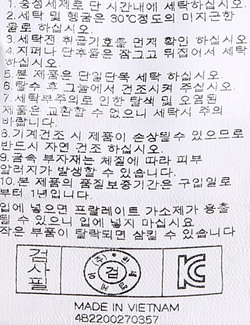 1.중성세제로 단 시간내에 세탁하십시오.
2.세탁 및 헹굼은 30℃정도의 미지근한
물로 하십시오.
3.세탁제 취급기호를 먼저 확인 하십시오
4.지퍼나 단추들은 잠그고 뒤집어서 세탁
하십시오.
5.본 제품은 단일단독 세탁 하십시오.
6.탈수 후 그늘에서 건조시켜 주십시오.
7.세탁부주의로 인한 탈색 및 오염된
제품은 교환할 수 없으니 세탁시 주의
바랍니다.
8.기계건조 시 제품이 손상될수 있으므로
반드시 자연 건조 하십시오.
9.금속 부자재는 체질에 따라 피부
알러지가 발생할 수 있습니다.
10.본 제품의 품질보증기간은 구입일로
부터 1년입니다.
입에 넣으면 프탈레이트 가소제가 용출
될 수 있으니 입에 넣지 마십시요
작은 부품이 탈락되면 삼킬 수 있습니다
검사필
검
KC
MADE IN VIETNAM
4B2200270357